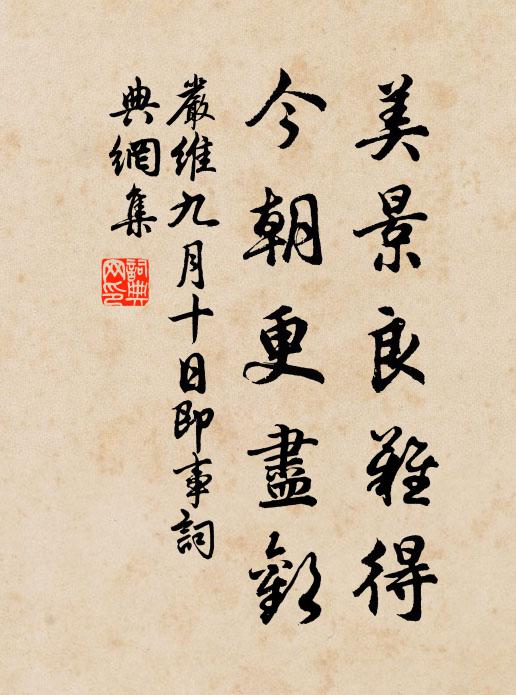 美景良難得
今朝更盡歡
嚴維九月十日即事詞
典網集
詞典
网印